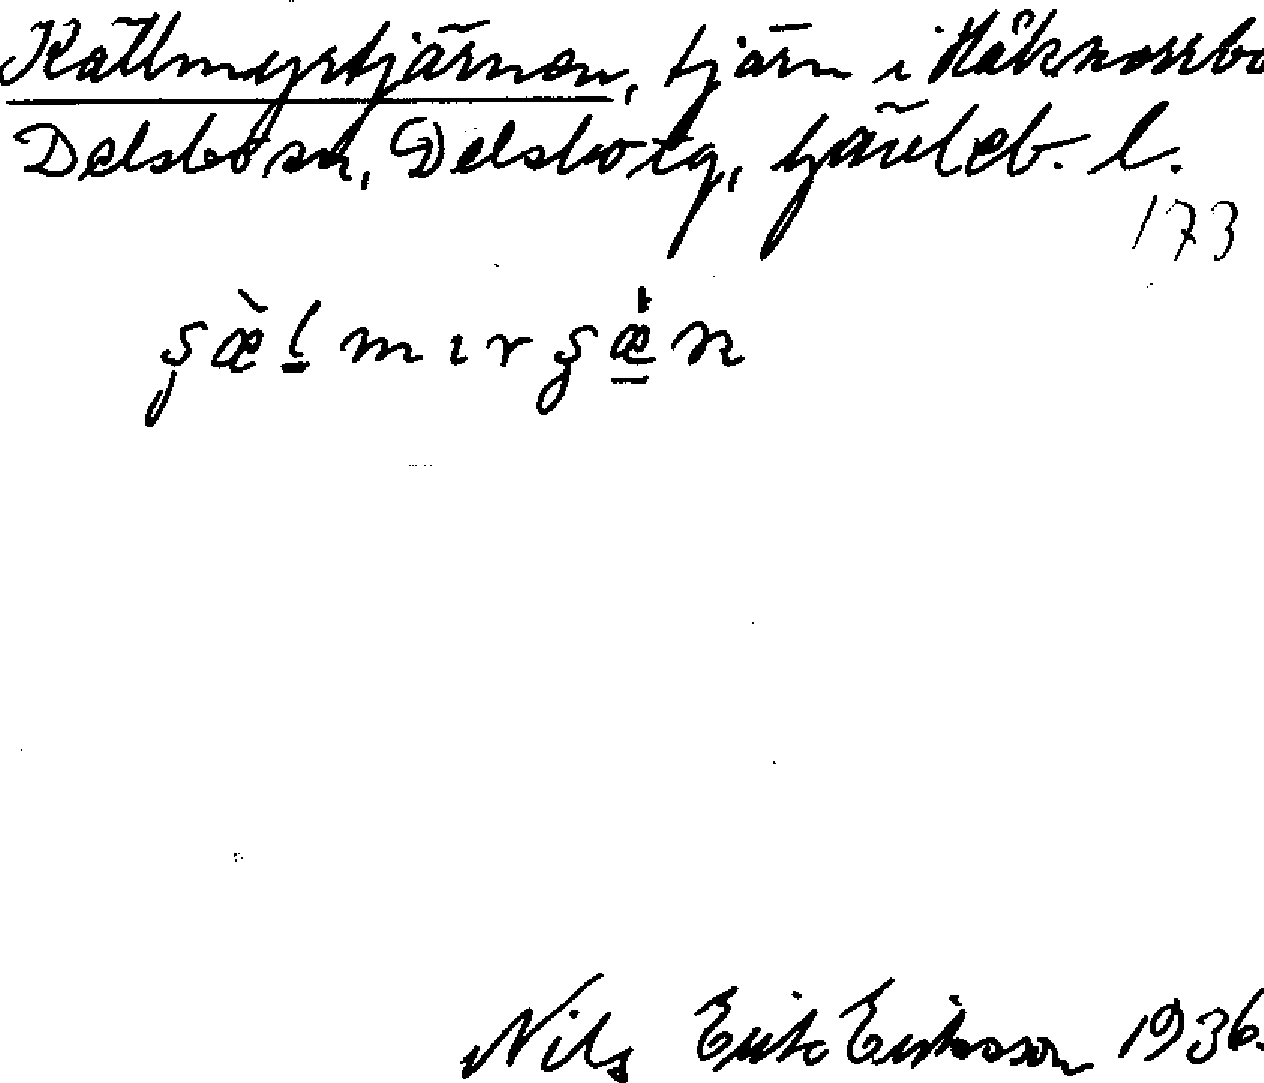 Källmyrtjärnen, tjärn i Håknorrbo
Delsbo sn, Delsbo tg, Gävleb. l.
173
Nils Erik Eriksson 1936.